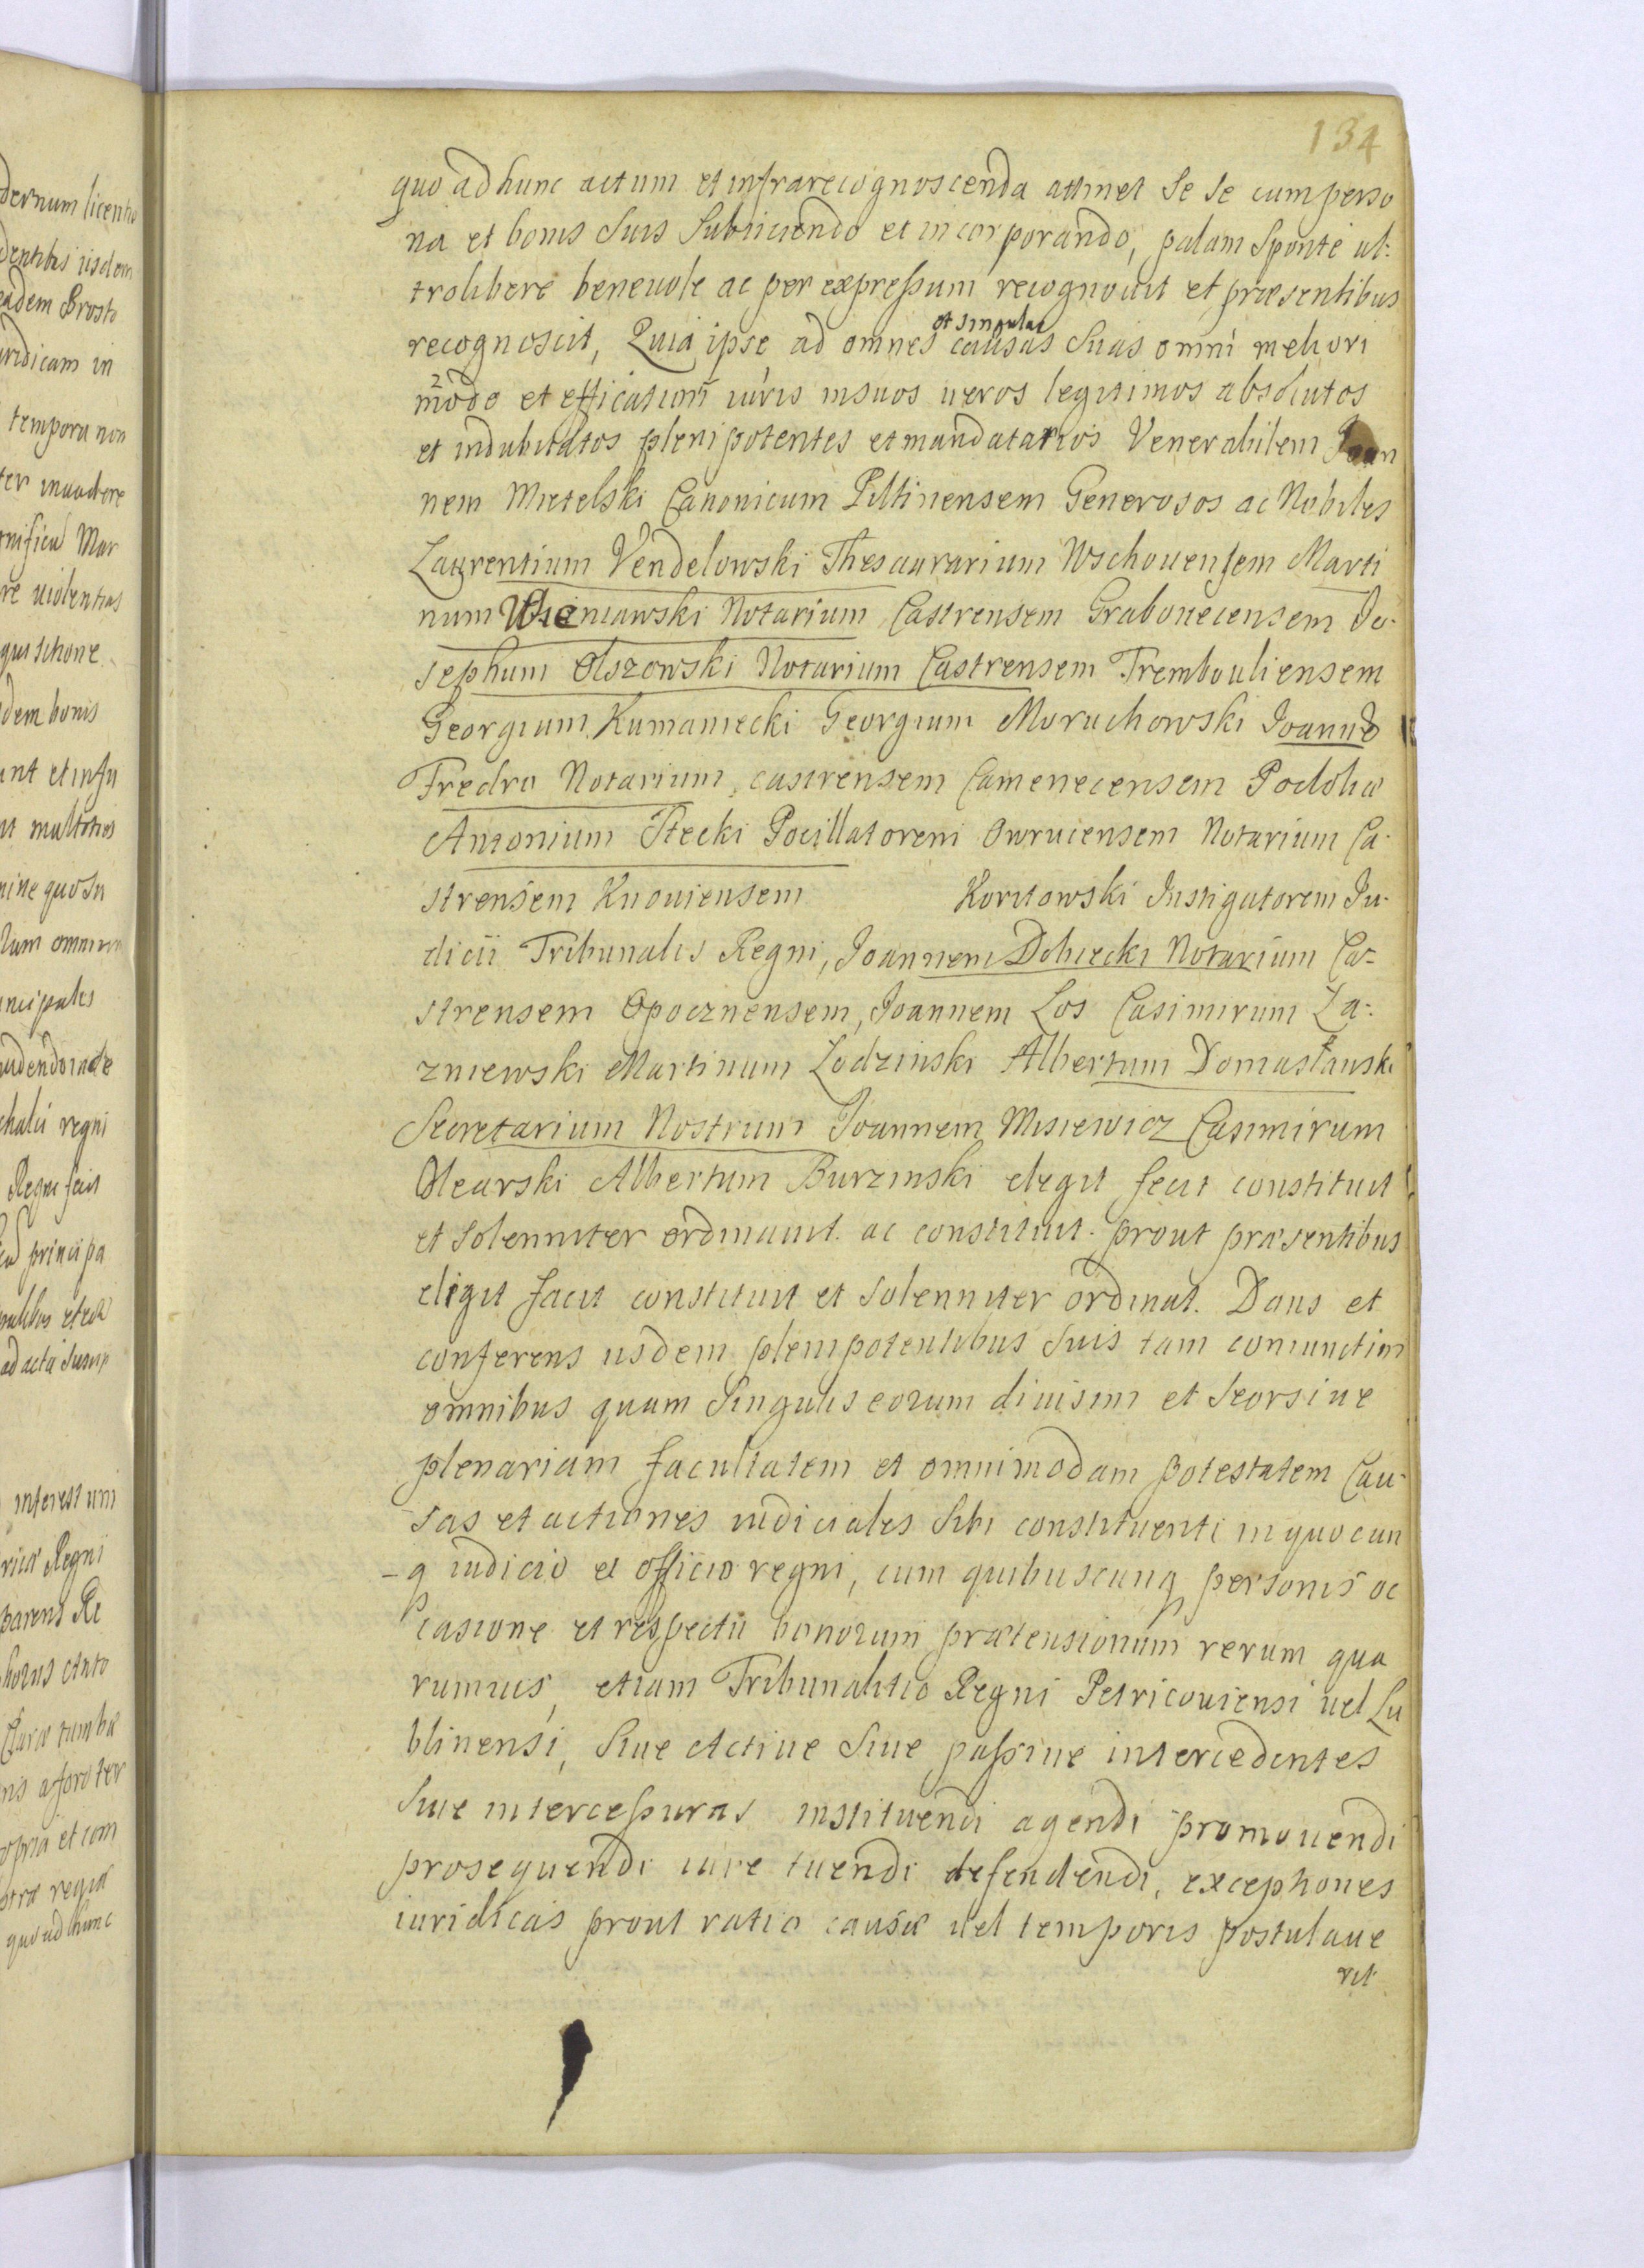 134
quo ad hunc actum et infrarecognoscenda attinet Se Se cum perso
na et bonis Suis Subiiciendo et incorporando, palam Sponte ul:
trolibere beneuole ac per expressum recognouit et præsentibus
et singulas
recognoscit, Quia ipse ad omnes causas Suas omni meliori
modo et efficatiori iuris in suos ueros legitimos absolutos
et indubitatos plenipotentes et mandatarios Venerabilem Joan
nem Mietelski Canonicum Piltinensem Generosos ac Nobiles
Laurentium Vendelowski Thesaurarium Wschouensem Marti
num Wieniawski Notarium Castrensem Grabouecensem Jo-
sephum Olszowski Notarium Castrensem Trembouliensem
Georgium Kumaniecki Georgium Moruchowski Joanne
Fredro Notarium castrensem Camenecensem Podoliæ
Antonium Stecki Pocillatorem Owrucensem Notarium Ca-
strensem Knouiensem Koritowski Instigatorem Ju-
dicii Tribunalis Regni, Joannem Dobiecki Notarium Ca-
strensem Opocznensem, Joannem Los Casimirum Za-
zniewski Martinum Lodzinski Albertum Domaslauski
Secretarium Nostrum Joannem Misiewicz Casimirum
Olearski Albertum Burzinski elegit fecit constituit
et Solenniter ordinauit ac constituit prout præsentibus
eligit facit constituit et Solenniter ordinat. Dans et
conferens iisdem plenipotentibus Suis tam coniunctim
omnibus quam Singulis eorum diuisim et Seorsiue
plenariam facultatem et omnimodam potestatem Cau-
sas et actiones iudiciales Sibi constituenti in quocun
-q iudicio et officio regni, cum quibuscunq personis oc
casione et respectu bonorum prætensionum rerum qua
rumuis, etiam Tribunalitio Regni Petricouiensi uel Lu
blinensi, Siue Actiue Siue passiue intercedentes
Siue intercessuras instituendi agendi promouendi
prosequendi iure tuendi defendendi, exceptiones
iuridicas prout ratio causæ uel temporis postulaue
rit
dernum licentio
dentibus iisdem
eadem Prosto
uridicam in
tempora non
ter inuadere
gnificu Mar
re uiolentias
quisitione
dem bonis
unt et infu
ut multoties
mine quo su
lum omnium
incipales
udendo iace
chalci regni
Regni fecit
principa
ad acta Suscip
interest uni
ricæ Regni
parens Re
horus Anto
Claræ tumbæ
nis a foro ter
opria et com
stræ regiæ
quo ad hunc